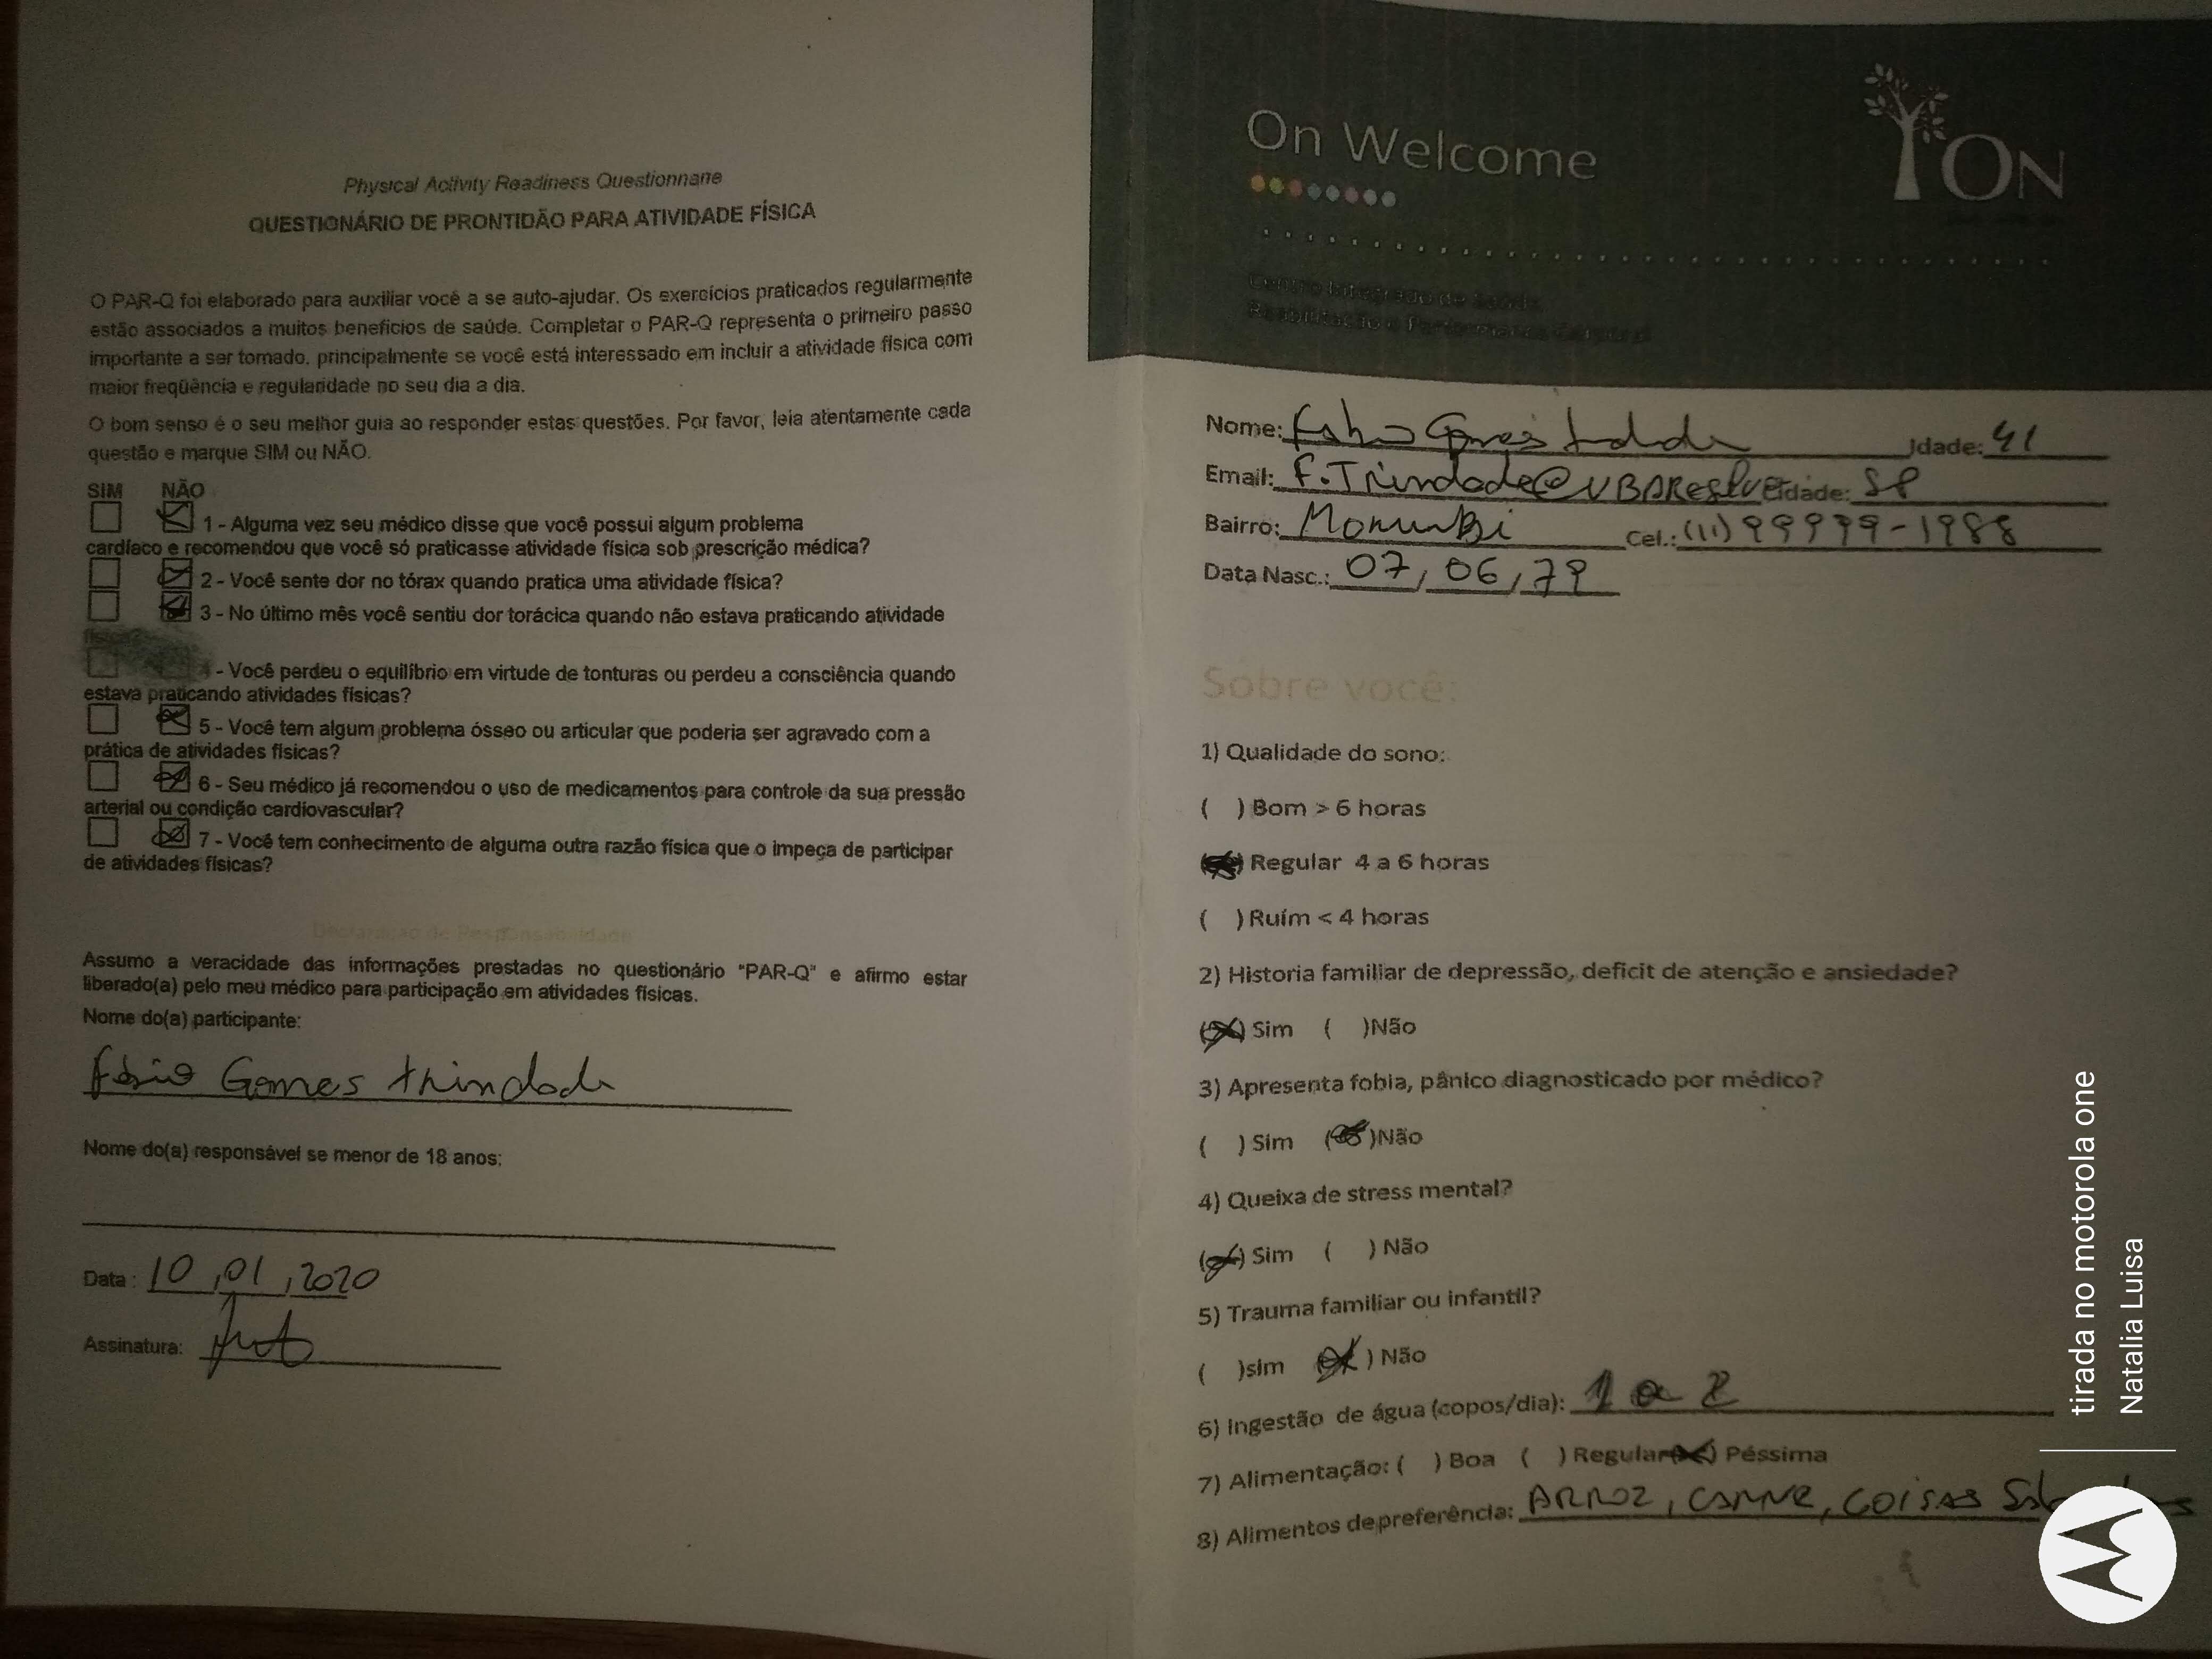 Physical Activity Readiness Questionnaire
QUESTIONÁRIO DE PRONTIDÃO PARA ATIVIDADE FÍSICA
O PAR-Q foi elaborado para auxiliar você a se auto-ajudar. Os exercícios praticados regularmente
estão associados a muitos beneficios de saúde. Completar o PAR-Q representa o primeiro passo
importante a ser tomado, principalmente se você está interessado em incluir a atividade física com
maior freqüência e regularidade no seu dia a dia.
O bom senso é o seu melhor guia ao responder estas questões. Por favor, leia atentamente cada
questão e marque SIM ou NÃO.
SIM NÃO
1 - Alguma vez seu médico disse que você possui algum problema
cardíaco e recomendou que você só praticasse atividade física sob prescrição médica?
2 - Você sente dor no tórax quando pratica uma atividade física?
3 - No último mês você sentiu dor torácica quando não estava praticando atividade
física?
4 - Você perdeu o equilíbrio em virtude de tonturas ou perdeu a consciência quando
estava praticando atividades físicas?
5 - Você tem algum problema ósseo ou articular que poderia ser agravado com a
prática de atividades físicas?
6 - Seu médico já recomendou o uso de medicamentos para controle da sua pressão
arterial ou condição cardiovascular?
7 - Você tem conhecimento de alguma outra razão física que o impeça de participar
de atividades físicas?
Declaração de Responsabilidade
Assumo a veracidade das informações prestadas no questionário “PAR-Q” e afirmo estar
liberado(a) pelo meu médico para participação em atividades físicas.
Nome do(a) participante:
Fábio Gomes trindade
Nome do(a) responsável se menor de 18 anos:
Data : 10,01,2020
Assinatura:
On Welcome
ON
Centro Integrado de Saúde
Nome: Fabio Gomes trindade Idade: 41
Email: F.Trindade@ Cidade: SP
Bairro: Morumbi Cel.: (11) 99999-1988
Data Nasc.: 07, 06, 79
Sobre você:
1) Qualidade do sono:
( ) Bom > 6 horas
(x) Regular 4 a 6 horas
( ) Ruím < 4 horas
2) Historia familiar de depressão, deficit de atenção e ansiedade?
(x) Sim ( )Não
3) Apresenta fobia, pânico diagnosticado por médico?
( ) Sim (x)Não
4) Queixa de stress mental?
(x) Sim ( ) Não
5) Trauma familiar ou infantil?
( )sim (x) Não
6) Ingestão de água (copos/dia): 1 a 2
7) Alimentação: ( ) Boa ( ) Regular (x) Péssima
8) Alimentos de preferência: ARROZ, CARNE, COISAS
tirada no motorola one
Natalia Luisa